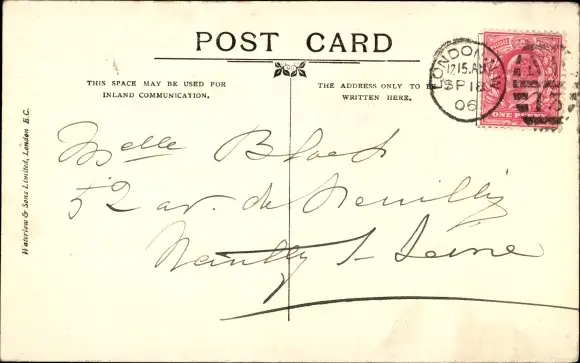 POST CARD
THIS SPACE MAY BE USED FOR
INLAND COMMUNICATION.
THE ADDRESS ONLY TO BE
WRITTEN HERE.
LONDON. N.W
12 15. AM
SP 18
06
ONE PENNY
Waterlow & Sons Limited, London E.C.
Melle Bloch
52 av. de Neuilly
Neuilly s/ Seine